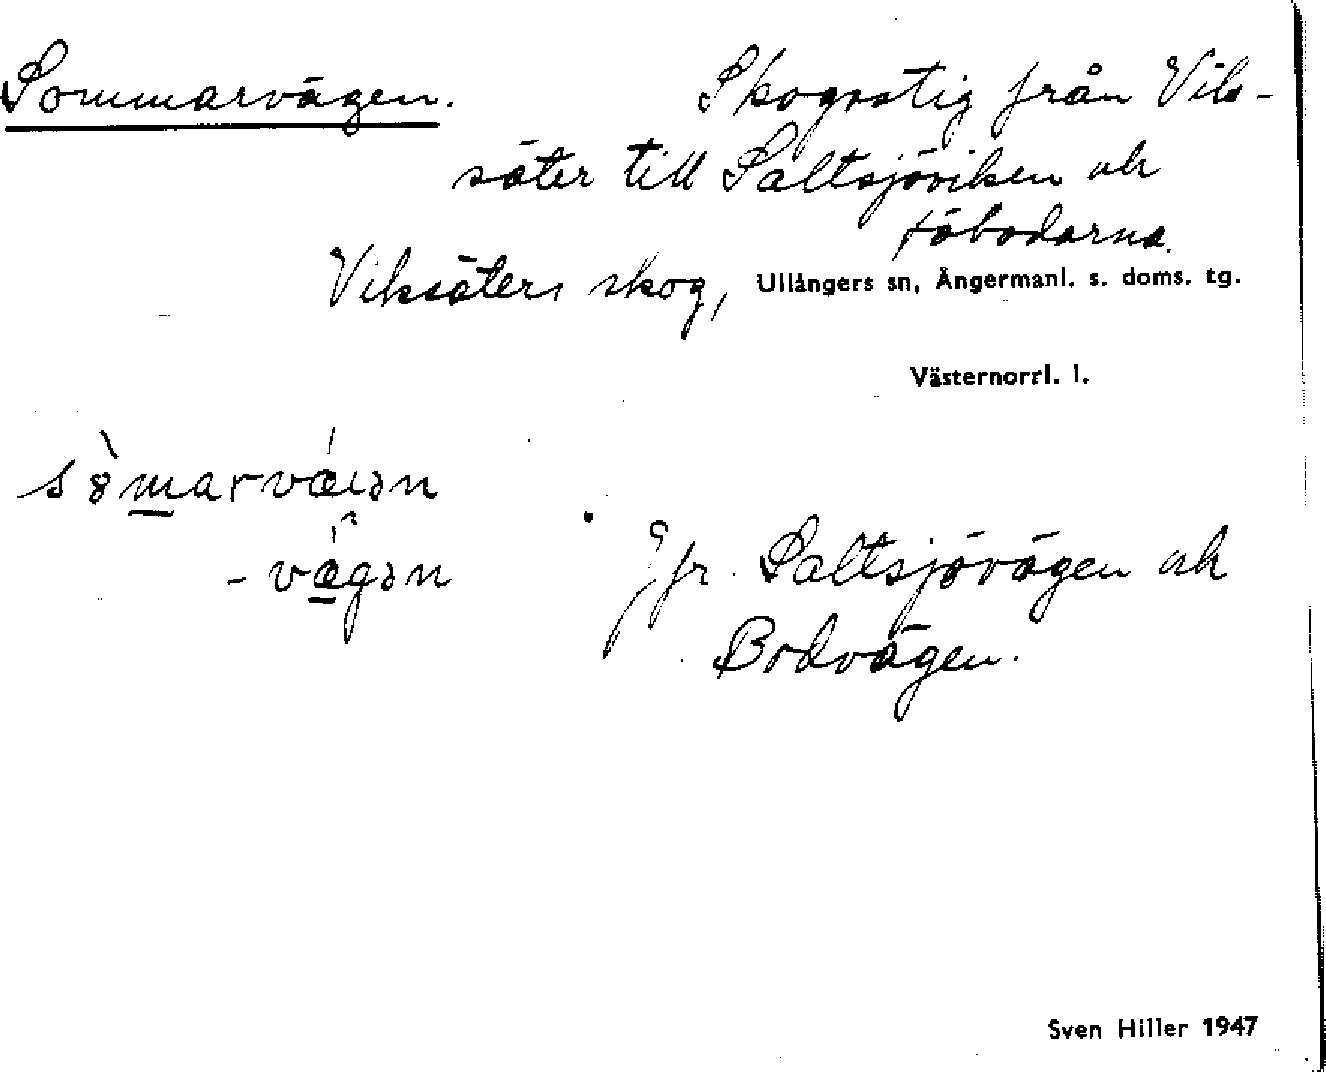 Sommarvägen. Skogsstig från Vik-
säter till Saltsjöviken och
fäbodarna.
Viksäters skog, Ullångers sn, Ångermanl. s. doms. tg.
Västernorrl. l.
Jfr. Saltsjövägen och
Bodvägen.
Sven Hiller 1947